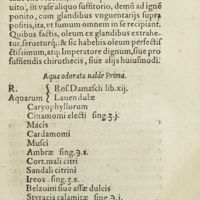 uito, in vase aliquo suffitorio, demū ad igné
ponito, cum glandibus vnguentarijs supra
positis, ita, vt fumum omnem in se recipiant.
Quibus factis, oleum ex glandibus extrahe-
tur, seruetūrq́;. & sic habebis oleum perfecti
ctissimum, atq; Imperatore dignum, siue pro
suffiendis chirothecis, siue alijs huiusmodi.
Aqua odorata ualde Prima.
R. { Ros. Damasch lib.xij.
Aquarum { Lauendulæ
Caryophyllorum
Cinamomi electi sing.ʒ.j.
Macis
Cardamomi
Musci
Ambræ sing.℈.s.
Cort.mali citri
Sandali citrini
Ireos sing.ʒ.s.
Belzoini siue assæ dulcis
Styracis calamitæ sing.℈.j.